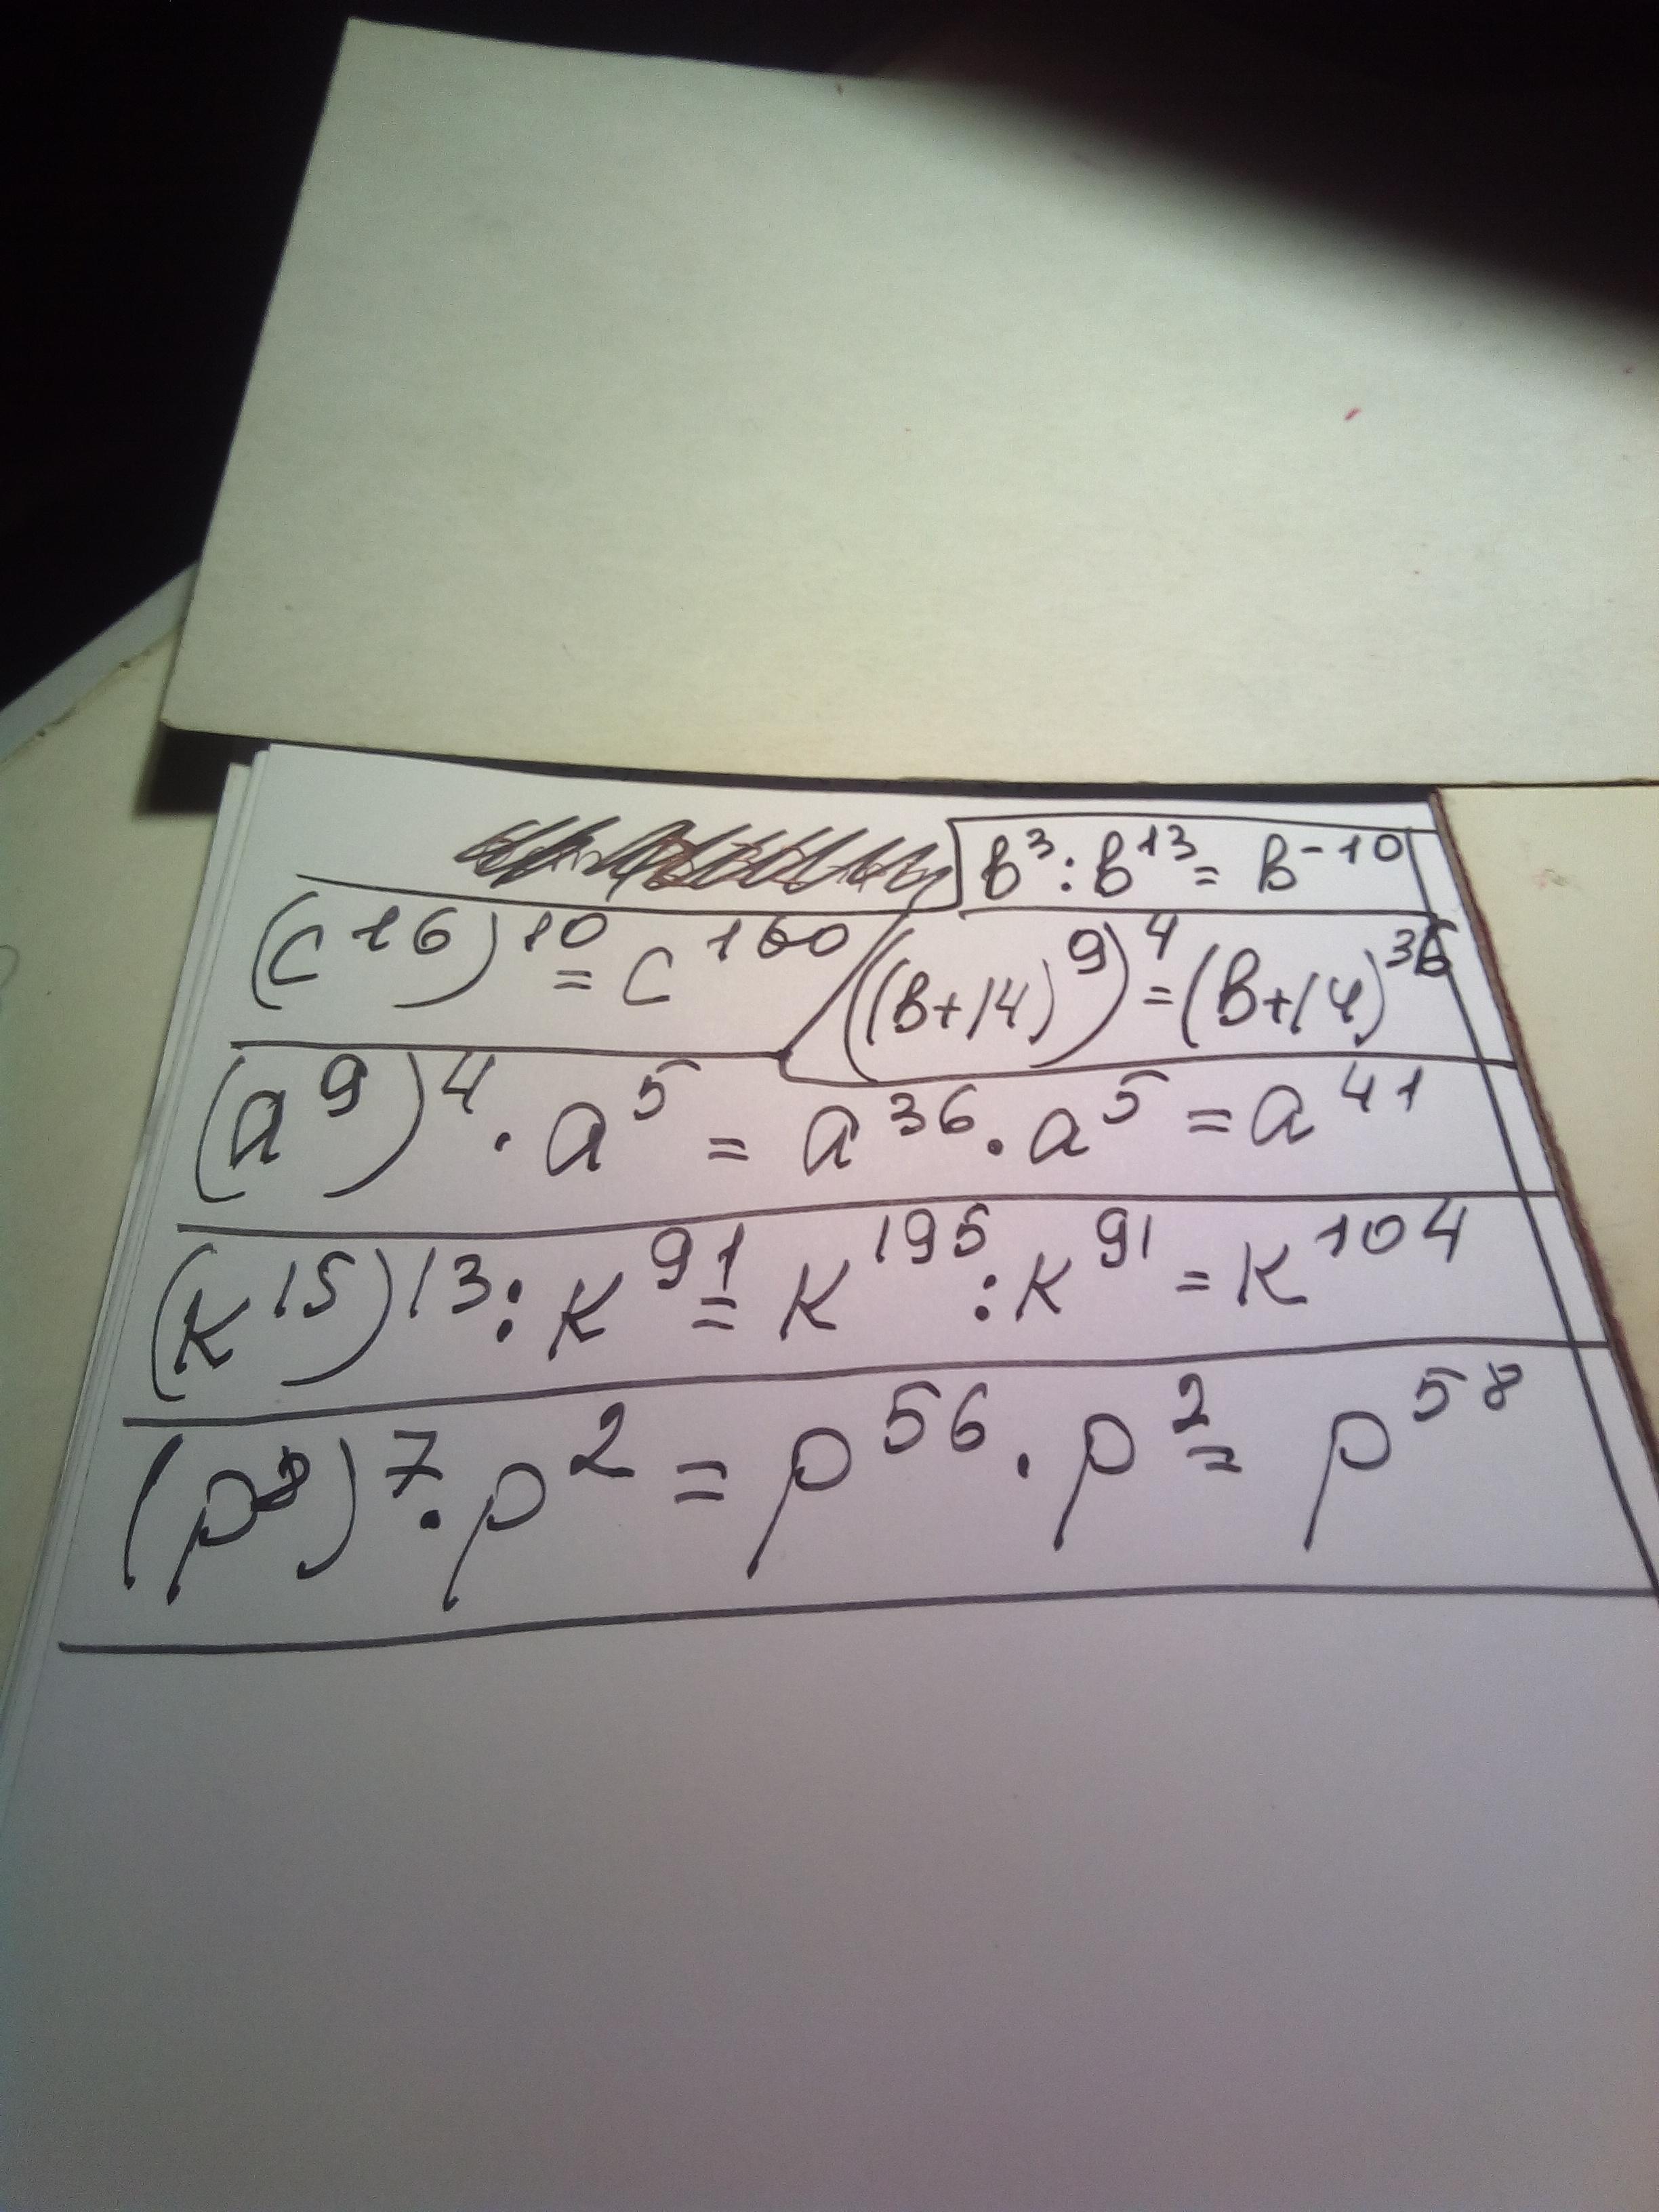 в³:в¹³= в⁻¹⁰
(c¹⁶)¹⁰=c¹⁶⁰
((в+14)⁹)⁴=(в+14)³⁶
(a⁹)⁴·a⁵=a³⁶·a⁵=a⁴¹
(к¹⁵)¹³:к⁹¹=к¹⁹⁵:к⁹¹=к¹⁰⁴
(p⁸)⁷·p²=p⁵⁶·p²=p⁵⁸